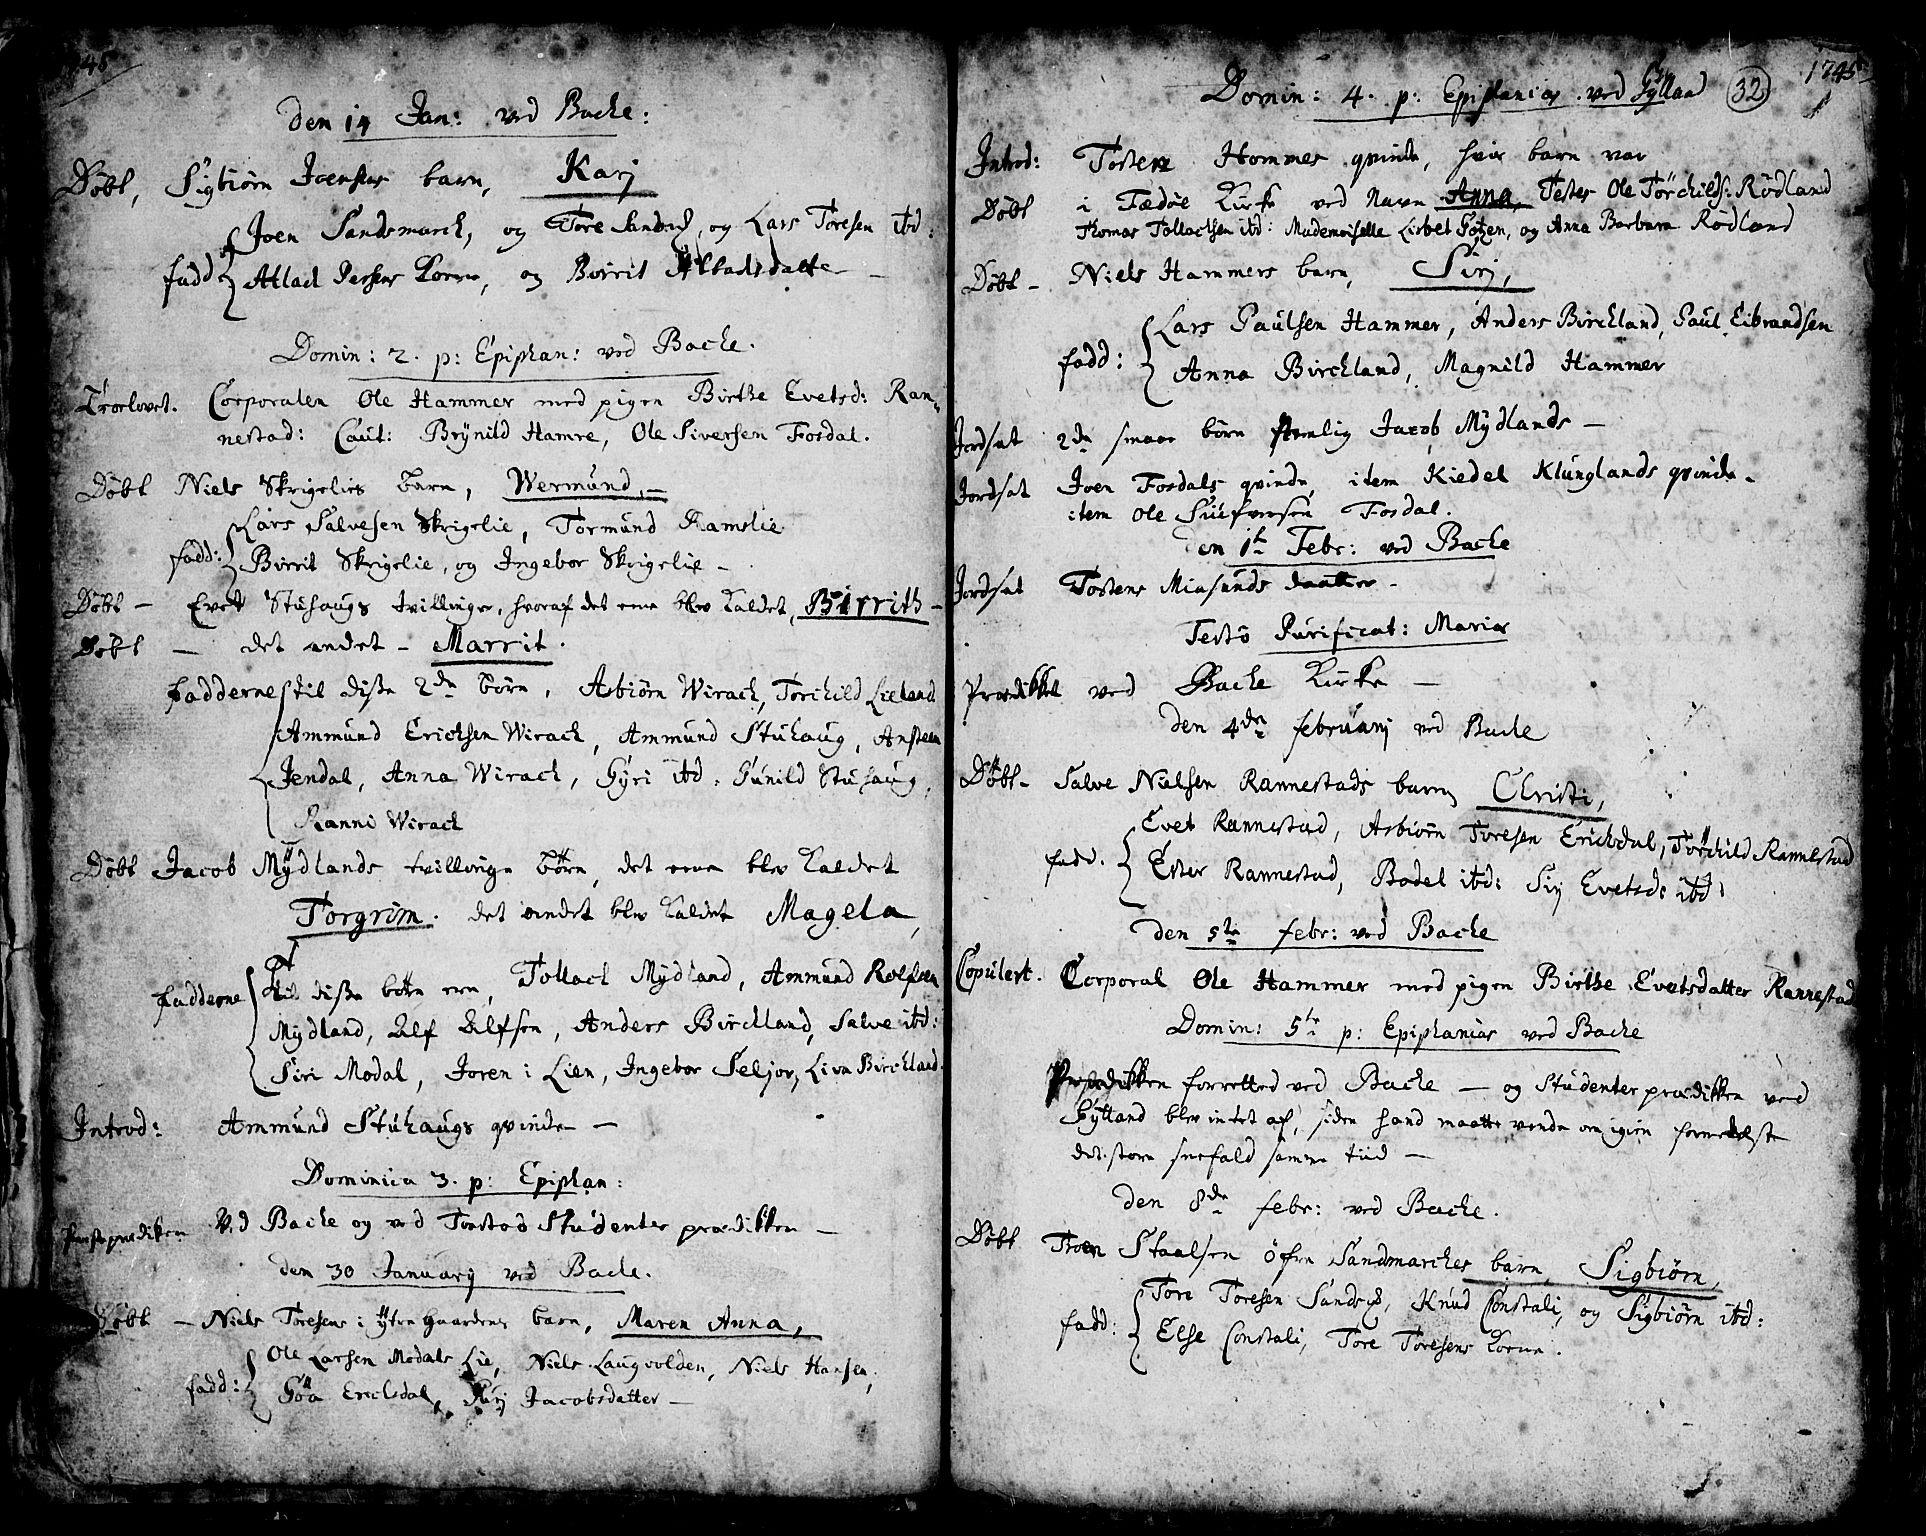 1745
den 14 Jan: ved Backe:
Døbt, Sigbiørn Joensens barn, Karj
Joen Sandsmarck, og Tore Sandsd, og Lars Toresen itd:
fadd: Atlach Persens Kone, og Birrit Atladsdatter
Domin: 2. p: Epiphan: ved Backe.
Troelovet. Corporalen Ole Hammer med pigen Birthe Evetsd: Ran-
nestad: Caut: Brÿnild Hamre, Ole Siversen Fosdal.
Døbt Niels Skrigelies barn, Wermund,
Lars Salvesen Skrigelie, Tormund Ramslie
fadd: Birrit Skrigelie, og Ingebor Skrigelie –
Døbt – Evet Stuhaugs tvillinger, hvoraf det eene blev kaldet, Birrith –
Døbt – det andet – Marrit.
Fadderne til disse 2de børn, Asbiørn Wirach, Torchild Lieland
Ammund Erichsen Wirach, Ammund Stuhaug, Ansteen
Jendal, Anna Wirach, Gÿri itd: Gunild Stuhaug,
Ranni Wirach
Døbt Jacob Mÿdlands tvillinge børn, det eene blev kaldet
Torgrim. det andet blev kaldet Magela,
Fadderne til disse børn ere, Tollach Mÿdland, Ammund Rolfsen
Mÿdland, Alf Alfsen, Anders Birckland, Salve itd:
Siri Modal, Joren i Lien, Ingebor Seljor, Liva Birckland.
Introd: Ammund Stuhaugs qvinde –
Dominica 3. p: Epiphan:
prædiken Ved Backe og ved Tonstad Studenter prædikken –
den 30 Januarij ved Backe.
Døbt – Niels Toresens i ÿtre Gaardens barn, Maren Anna,
Ole Larsen Modals Lie, Niels Laugvolden, Niels Hansen,
fadd: Göa Ericksdal, Siri Jacobsdatter –
1745
32
Domin: 4. p: Epiphanias ved Gÿlland
Introd: Tosten Hommes qvinde, hvis barn var
Døbt i Fædøe Kirke ved Navn Anna, Testes Ole Törchilds: Rödland
Thomas Tollacksen itd: Mademoiselle Lisbet Götzen, og Anna Barbara Rödland
Døbt – Niels Hammers barn, Sirj,
Lars Paulsen Hammer, Anders Birckland, Paul Eibrandsen
fadd: Anna Birckland, Magnild Hammer
Jordsat 2de smaae børn nemlig Jacob Mÿdlands –
Jordsat Joen Fosdals qvinde, item Kiedel Klunglands qvinde –
item Ole Siversen Fosdal.
den 1te Febr: ved Backe
Jordsat Tostens Miasunds daatter –
Festo Purificat: Mariæ
Prædikket ved Backe Kirke –
den 4de februarij ved Backe
Døbt – Salve Nielsen Rannestads barn Christi,
Evet Rannestad, Asbiörn Toresen Erichdal, Törchild Rannestad
fadd: Ester Rannestad, Bodel itd: Sirj Evetsds itd:
den 5te febr: ved Backe
Copulert. Corporal Ole Hammer med pigen Birthe Evetsdatter Rannestad
Domin: 5te p: Epiphanias ved Backe
Prædikken forretted ved Backe – og Studenterprædikken ved
Gÿlland blev intet af, siden hand maatte vende om igien formedelst
det store sneefald samme tiid –
den 8de febr: ved Backe.
Døbt Toer Staalsen öfre Sandsmarckes barn, Sigbiørn,
Tore Toresen Sandsgd, Knud Constali, og Sigbiørn itd:
fadd: Else Constali, Tore Toresens Kone.